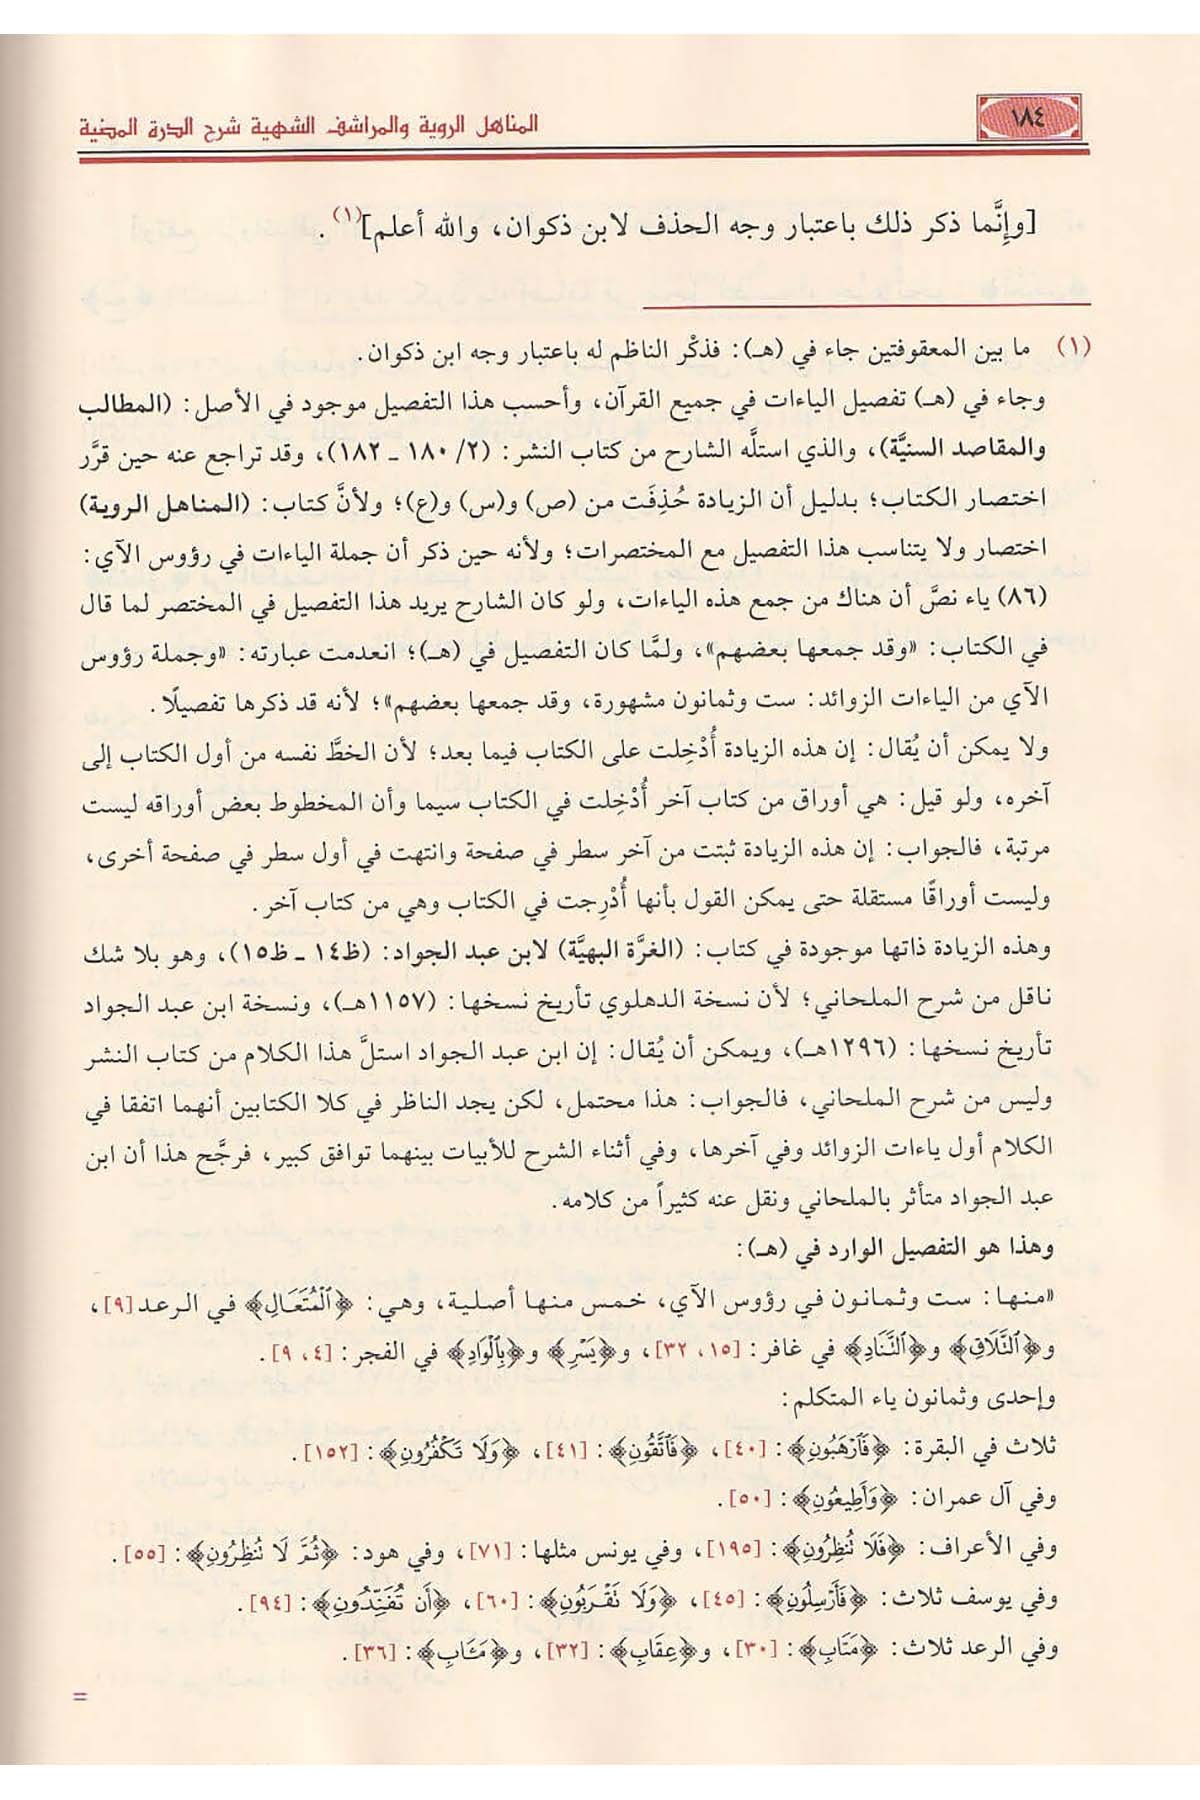 ١٨٤
المناهل الروية والمراشف الشهية شرح الدرة المضية
[وإنَّما ذكر ذلك باعتبار وجه الحذف لابن ذكوان، والله أعلم](١).
(١) ما بين المعقوفتين جاء في (هـ): فذكْر الناظم له باعتبار وجه ابن ذكوان.
وجاء في (هـ) تفصيل الياءات في جميع القرآن، وأحسب هذا التفصيل موجود في الأصل: (المطالب
والمقاصد السنيَّة)، والذي استلَّه الشارح من كتاب النشر: (٢/ ١٨٠ ـ ١٨٢)، وقد تراجع عنه حين قرَّر
اختصار الكتاب؛ بدليل أن الزيادة حُذِفَت من (ص) و(س) و(ع)؛ ولأنَّ كتاب: (المناهل الروية)
اختصار ولا يتناسب هذا التفصيل مع المختصرات؛ ولأنه حين ذكر أن جملة الياءات في رؤوس الآي:
(٨٦) ياء نصَّ أن هناك من جمع هذه الياءات، ولو كان الشارح يريد هذا التفصيل في المختصر لما قال
في الكتاب: «وقد جمعها بعضهم»، ولمَّا كان التفصيل في (هـ)؛ انعدمت عبارته: «وجملة رؤوس
الآي من الياءات الزوائد: ست وثمانون مشهورة، وقد جمعها بعضهم»؛ لأنه قد ذكرها تفصيلًا.
ولا يمكن أن يُقال: إن هذه الزيادة أُدْخِلت على الكتاب فيما بعد؛ لأن الخطَّ نفسه من أول الكتاب إلى
آخره، ولو قيل: هي أوراق من كتاب آخر أُدْخِلت في الكتاب سيما وأن المخطوط بعض أوراقه ليست
مرتبة، فالجواب: إن هذه الزيادة ثبتت من آخر سطر في صفحة وانتهت في أول سطر في صفحة أخرى،
وليست أوراقًا مستقلة حتى يمكن القول بأنها أُدْرِجت في الكتاب وهي من كتاب آخر.
وهذه الزيادة ذاتها موجودة في كتاب: (الغرَّة البهيَّة) لابن عبد الجواد: (ظ١٤ ـ ظ١٥)، وهو بلا شك
ناقل من شرح الملحاني؛ لأن نسخة الدهلوي تأريخ نسخها: (١١٥٧هـ)، ونسخة ابن عبد الجواد
تأريخ نسخها: (١٢٩٦هـ)، ويمكن أن يُقال: إن ابن عبد الجواد استلَّ هذا الكلام من كتاب النشر
وليس من شرح الملحاني، فالجواب: هذا محتمل، لكن يجد الناظر في كلا الكتابين أنهما اتفقا في
الكلام أول ياءات الزوائد وفي آخرها، وفي أثناء الشرح للأبيات بينهما توافق كبير، فرجَّح هذا أن ابن
عبد الجواد متأثر بالملحاني ونقل عنه كثيراً من كلامه.
وهذا هو التفصيل الوارد في (هـ):
«منها: ست وثمانون في رؤوس الآي، خمس منها أصلية، وهي: ﴿ٱلْمُتَعَالِ﴾ في الرعد [٩]،
و﴿ٱلتَّلَاقِ﴾ و﴿ٱلتَّنَادِ﴾ في غافر: [١٥، ٣٢]، و﴿يَسْرِ﴾ و﴿بِٱلْوَادِ﴾ في الفجر: [٤، ٩].
وإحدى وثمانون ياء المتكلم:
ثلاث في البقرة: ﴿فَٱرْهَبُونِ﴾: [٤٠]، ﴿فَٱتَّقُونِ﴾: [٤١]، ﴿وَلَا تَكْفُرُونِ﴾: [١٥٢].
وفي آل عمران: ﴿وَأَطِيعُونِ﴾: [٥٠].
وفي الأعراف: ﴿فَلَا تُنظِرُونِ﴾: [١٩٥]، وفي يونس مثلها: [٧١]، وفي هود: ﴿ثُمَّ لَا تُنظِرُونِ﴾: [٥٥].
وفي يوسف ثلاث: ﴿فَأَرْسِلُونِ﴾: [٤٥]، ﴿وَلَا تَقْرَبُونِ﴾: [٦٠]، ﴿أَن تُفَنِّدُونِ﴾: [٩٤].
وفي الرعد ثلاث: ﴿مَتَابِ﴾: [٣٠]، و﴿عِقَابِ﴾: [٣٢]، و﴿مَـَٔابِ﴾: [٣٦].
=